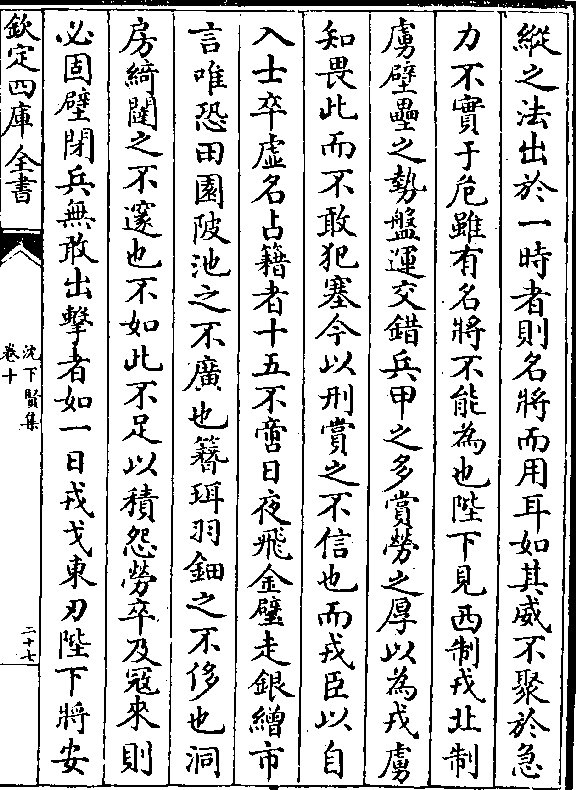 縱之法出於一時者則名將而用耳如其威不聚於急
力不實于危雖有名將不能為也陛下見西制戎北制
虜壁壘之勢盤運交錯兵甲之多賞勞之厚以為戎虜
知畏此而不敢犯塞今以刑賞之不信也而戎臣以自
入士卒虛名占籍者十五不啻日夜飛金璧走銀繒市
言唯恐田園陂池之不廣也簪珥羽鈿之不侈也洞
房綺闥之不邃也不如此不足以積怨勞卒及冦来則
必固壁閉兵無敢出擊者如一日戎戈東刃陛下將安
欽定四庫全書
沈下賢集
卷十
二十七